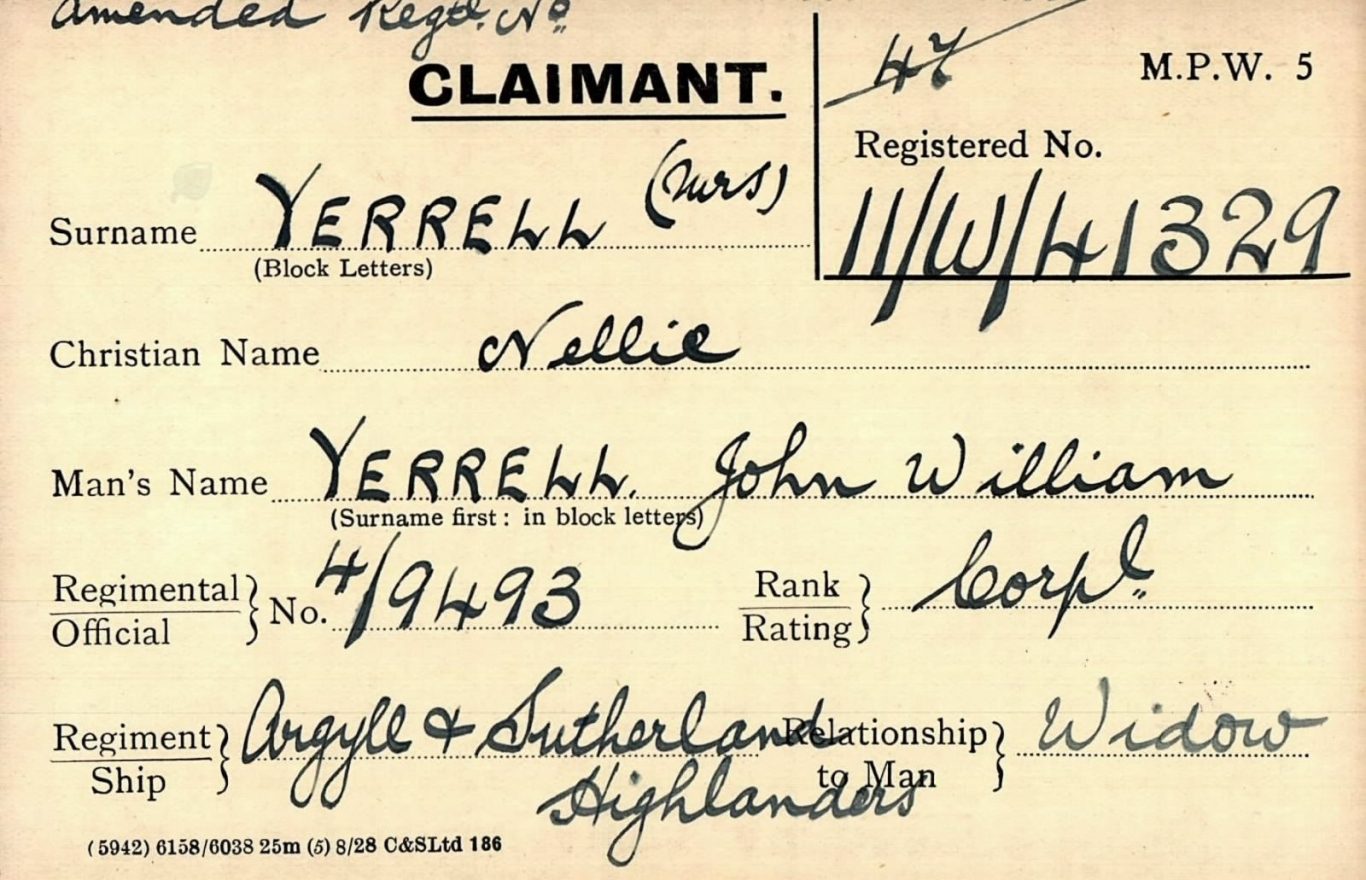 amended Regtl. No
CLAIMANT.
47
M.P.W. 5
Registered No.
11/W/41329
Surname YERRELL (Mrs)
(Block Letters)
Christian Name Nellie
Man's Name YERRELL. John William
(Surname first: in block letters)
Regimental
Official } No. 4/9493
Rank
Rating } Corpl.
Regiment
Ship } Argyll & Sutherland
Highlanders
Relationship
to Man } Widow
(5942) 6158/6038 25m (5) 8/28 C&SLtd 186